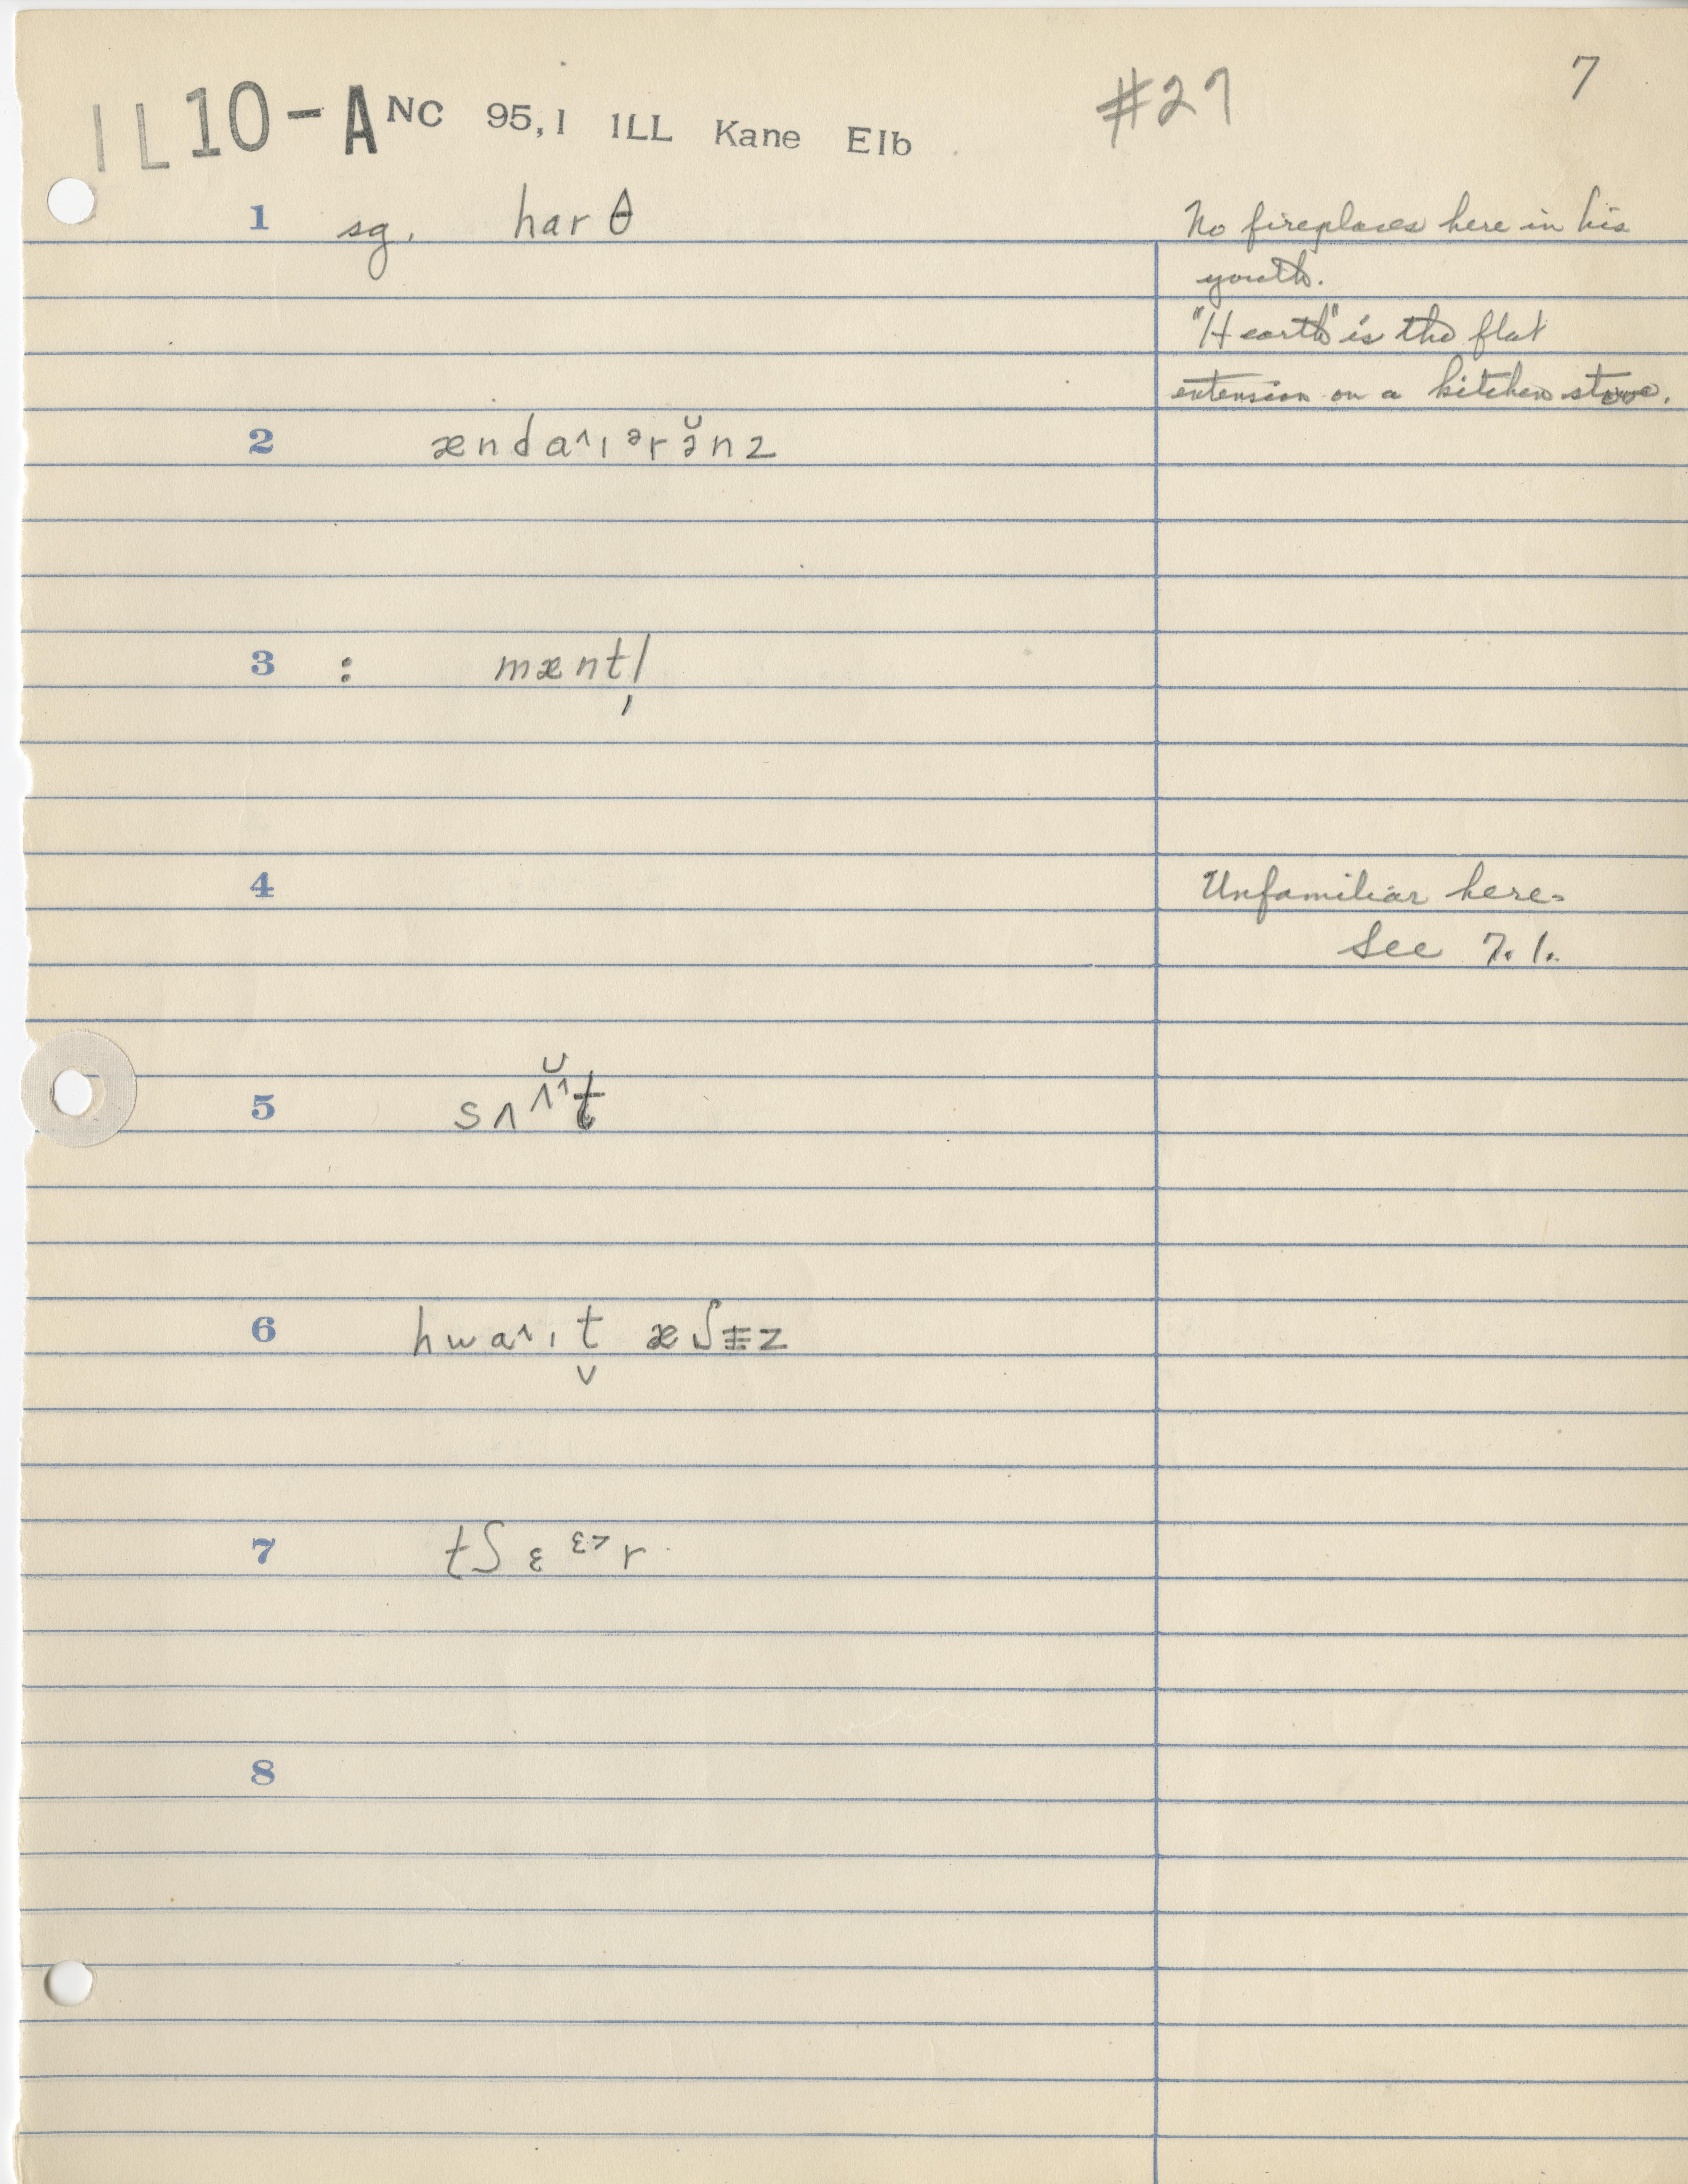 IL10-A NC 95,1 ILL Kane Elb #27 7
1 sg. harθ No fireplaces here in his
youth.
"Hearth" is the flat
extension on a kitchen stove.
2 ænda˄ɪᵊrə̆nz
3 : mæntl̩
4 Unfamiliar here-
See 7.1.
5 sʌʌ̆˄t
6 hwa˄ɪt̬ æʃɨz
7 tʃɛᵋ˃r
8